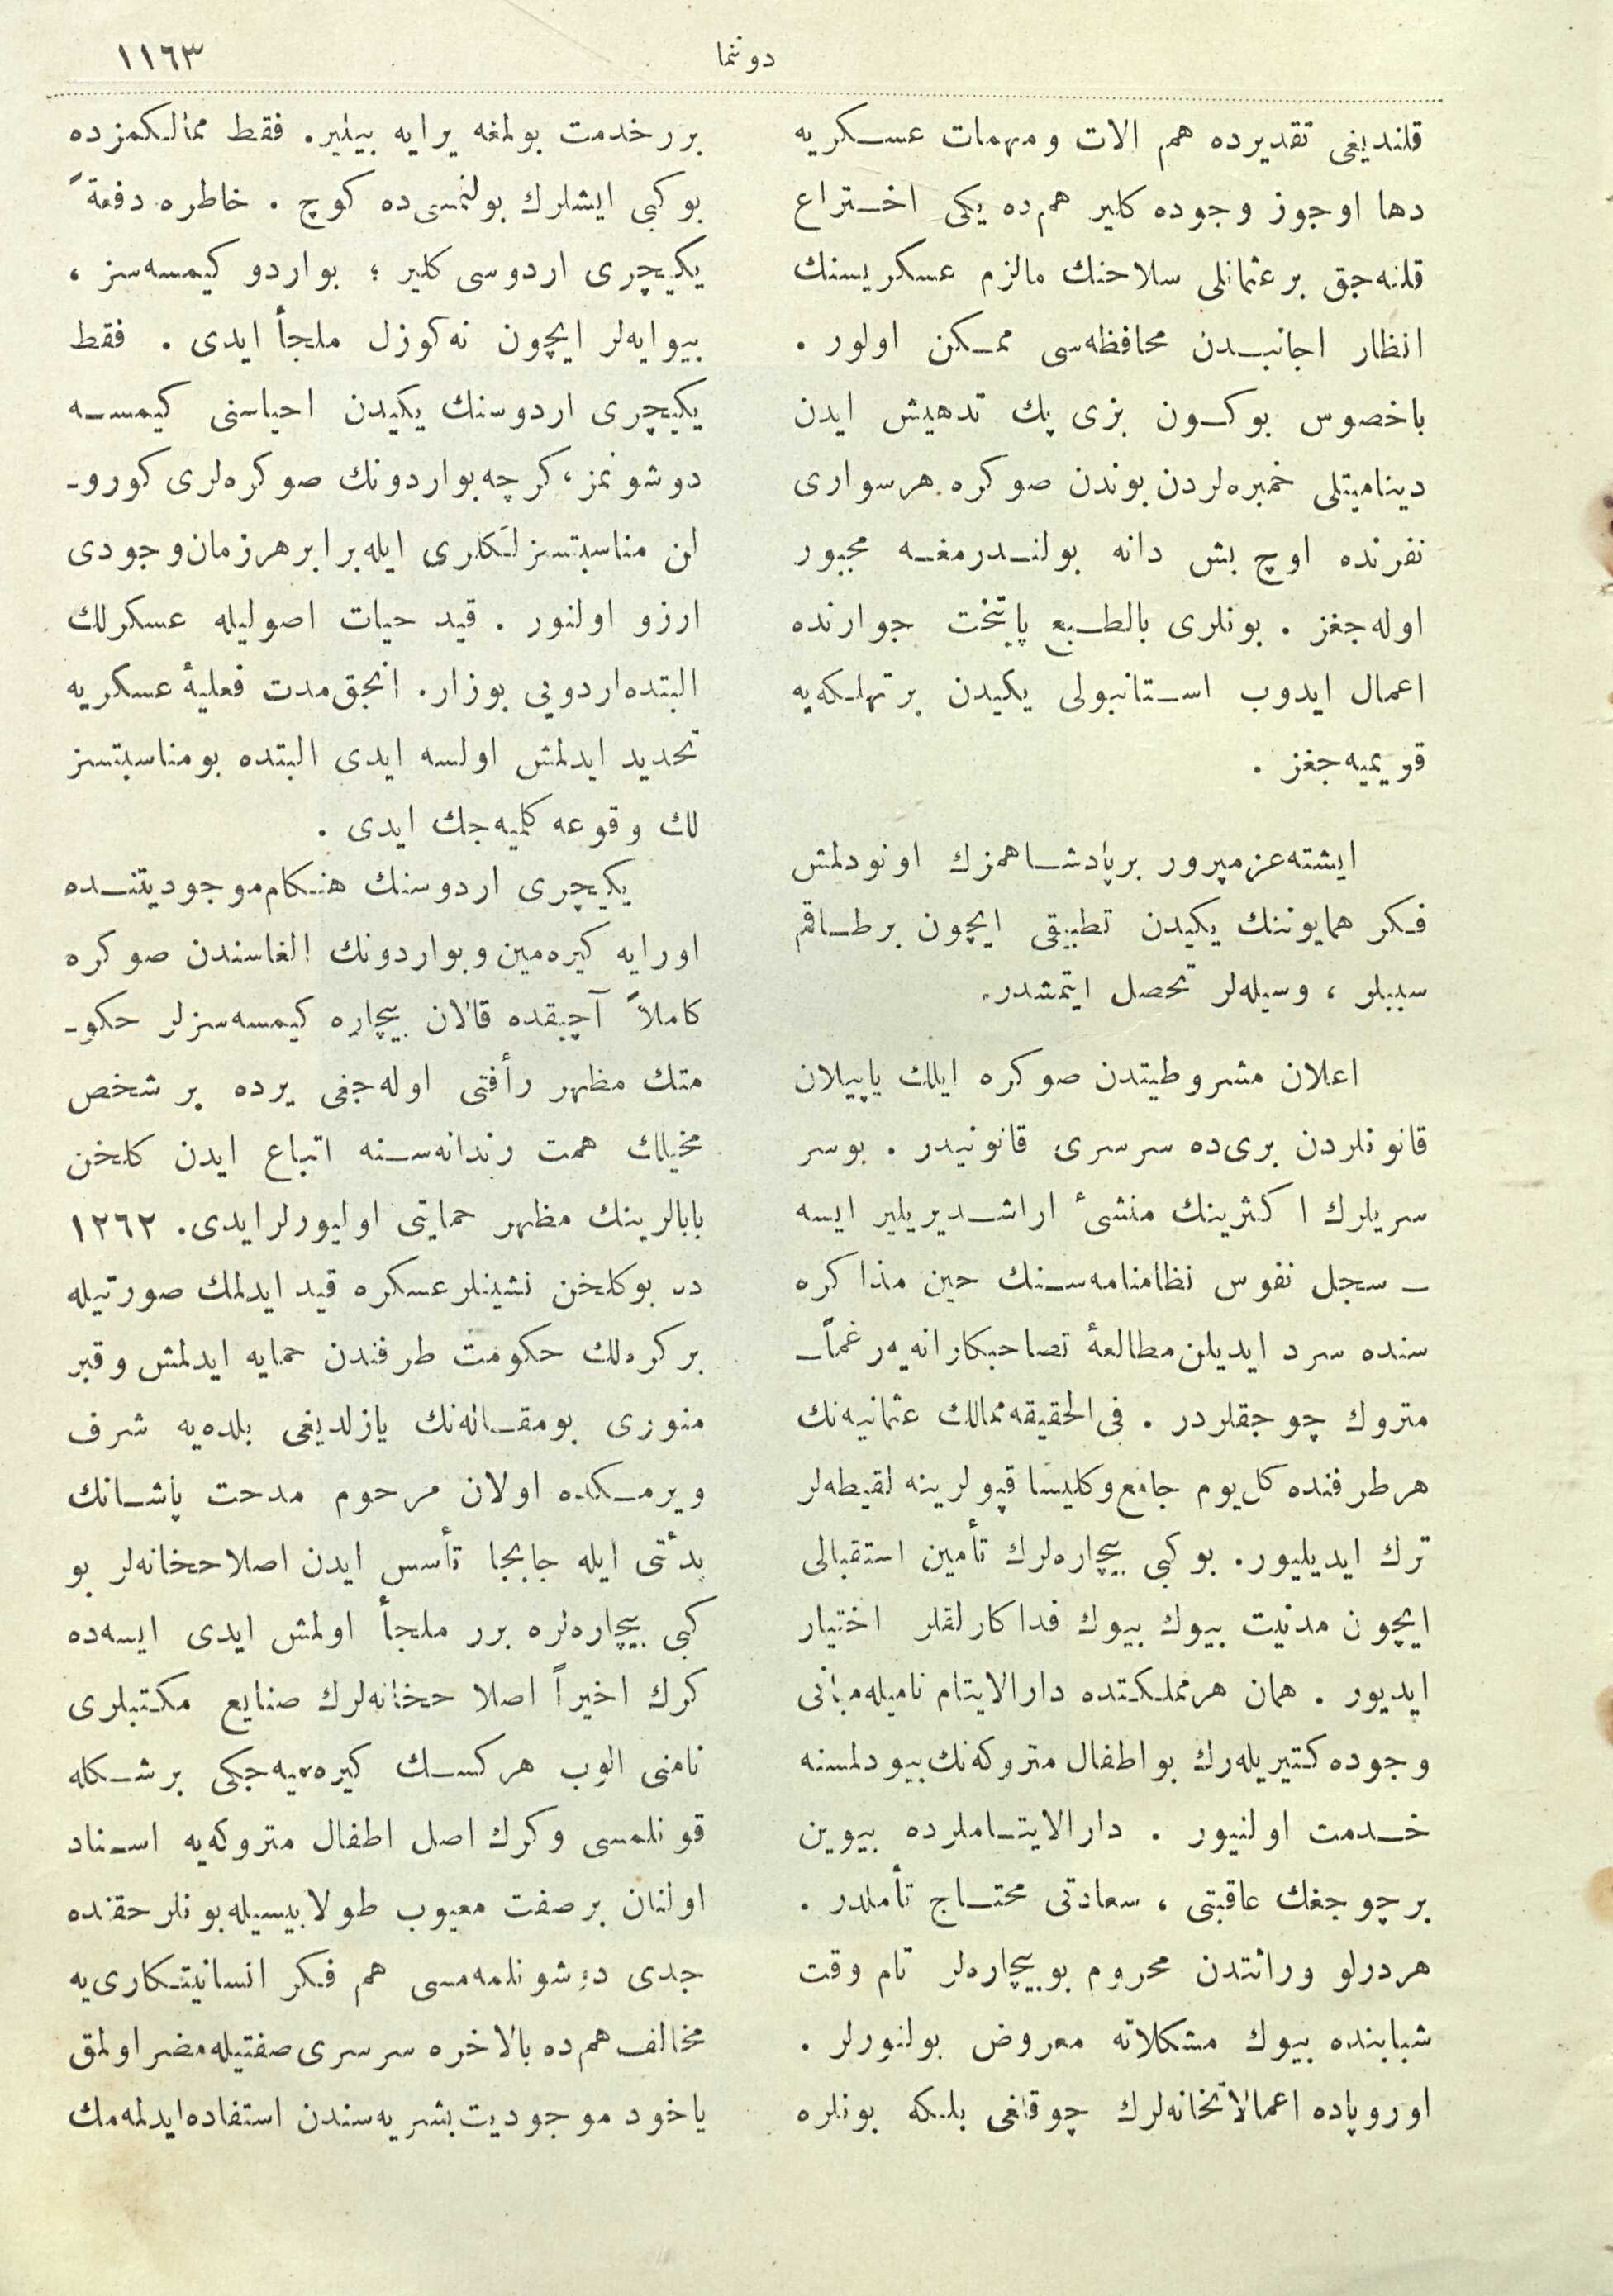 دوننما
١١٦٣
قلندیغی تقدیرده هم الات ومهمات عسكریه
دها اوجوز وجوده كلیر هم‌ده یكی اختراع
قلنه‌جق بر عثمانلی سلاحنك مالزم عسكریسنك
انظار اجانبدن محافظه‌سی ممكن اولور .
باخصوص بوكون بزی پك تدهیش ایدن
دینامیتلی خمبره‌لردن بوندن صوكره هر سواری
نفرنده اوچ بش دانه بولندرمغه مجبور
اوله‌جغز . بونلری بالطبع پایتخت جوارنده
اعمال ایدوب استانبولی یكیدن بر تهلكه‌یه
قویمیه‌جغز .
ایشته عزمپرور بر پادشاهمزك اونودلمش
فكر همایوننك یكیدن تطبیقی ایچون بر طاقم
سببلر ، وسیله‌لر تحصل ایتمشدر.
اعلان مشروطیتدن صوكره ایلك یاپیلان
قانونلردن بری‌ده سرسری قانونیدر . بوسر
سریلرك اكثرینك منشئ اراشدیریلیر ایسه
ـ سجل نفوس نظامنامه‌سنك حین مذاكره
سنده سرد ایدیلن مطالعۀ تصاحبكارانه‌یه رغماًـ
متروك چوجقلردر . فی‌الحقیقه ممالك عثمانیه‌نك
هر طرفنده كل یوم جامع وكلیسا قپولرینه لقیطه‌لر
ترك ایدیلیور. بوكبی بیچاره‌لرك تأمین استقبالی
ایچون مدنیت بیوك بیوك فداكارلقلر اختیار
ایدیور . همان هر مملكتده دارالایتام نامیله مبانی
وجوده كتیریله‌رك بو اطفال متروكه‌نك بیودلمسنه
خدمت اولنیور . دارالایتاملرده بیوین
بر چوجغك عاقبتی ، سعادتی محتاج تأملدر .
هردرلو وراثتدن محروم بوبیچاره‌لر تام وقت
شبابنده بیوك مشكلاته معروض بولنورلر .
اوروپاده اعمالاتخانه‌لرك چوقلغی بلكه بونلره
برر خدمت بولمغه یرایه بیلیر. فقط ممالكمزده
بوكبی ایشلرك بولنمسی‌ده كوچ . خاطره دفعةً
یكیچری اردوسی كلیر ؛ بواردو كیمسه‌سز ،
بیوایه‌لر ایچون نه كوزل ملجأ ایدی . فقط
یكیچری اردوسنك یكیدن احیاسنی كیمسه
دوشونمز ، كرچه بو اردونك صوكره‌لری كوروـ
لن مناسبتسزلكلری ایله برابر هر زمان وجودی
ارزو اولنور . قید حیات اصولیله عسكرلك
البتده اردویی بوزار. انجق مدت فعلیۀ عسكریه
تحدید ایدلمش اولسه ایدی البتده بومناسبتسز
لك وقوعه كلمیه‌جك ایدی .
یكیچری اردوسنك هنكام موجودیتنده
اورایه كیره‌مین وبو اردونك الغاسندن صوكره
كاملاً آچیقده قالان بیچاره كیمسه‌سزلر حكوـ
متك مظهر رأفتی اوله‌جغی یرده بر شخص
مخیلك همت رندانه‌سنه اتباع ایدن كلخن
بابالرینك مظهر حمایتی اولیورلر ایدی. ١٢٦٢
ده بوكلخن نشینلر عسكره قید ایدلمك صورتیله
بر كره‌لك حكومت طرفندن حمایه ایدلمش وقبر
منوری بومقاله‌نك یازلدیغی بلده‌یه شرف
ویرمكده اولان مرحوم مدحت پاشانك
بدئتی ایله جابجا تأسس ایدن اصلاحخانه‌لر بو
كبی بیچاره‌لره برر ملجأ اولمش ایدی ایسه‌ده
كرك اخیراً اصلاحخانه‌لرك صنایع مكتبلری
نامنی الوب هركسك كیره‌میه‌جكی بر شكله
قونلمسی وكرك اصل اطفال متروكه‌یه اسناد
اولنان بر صفت معیوب طولاییسیله بونلر حقنده
جدی دوشونلمه‌مسی هم فكر انسانیتكاری‌یه
مخالف هم‌ده بالاخره سرسری صفتیله مضر اولمق
یاخود موجودیت بشریه‌سندن استفاده ایدلمه‌مك